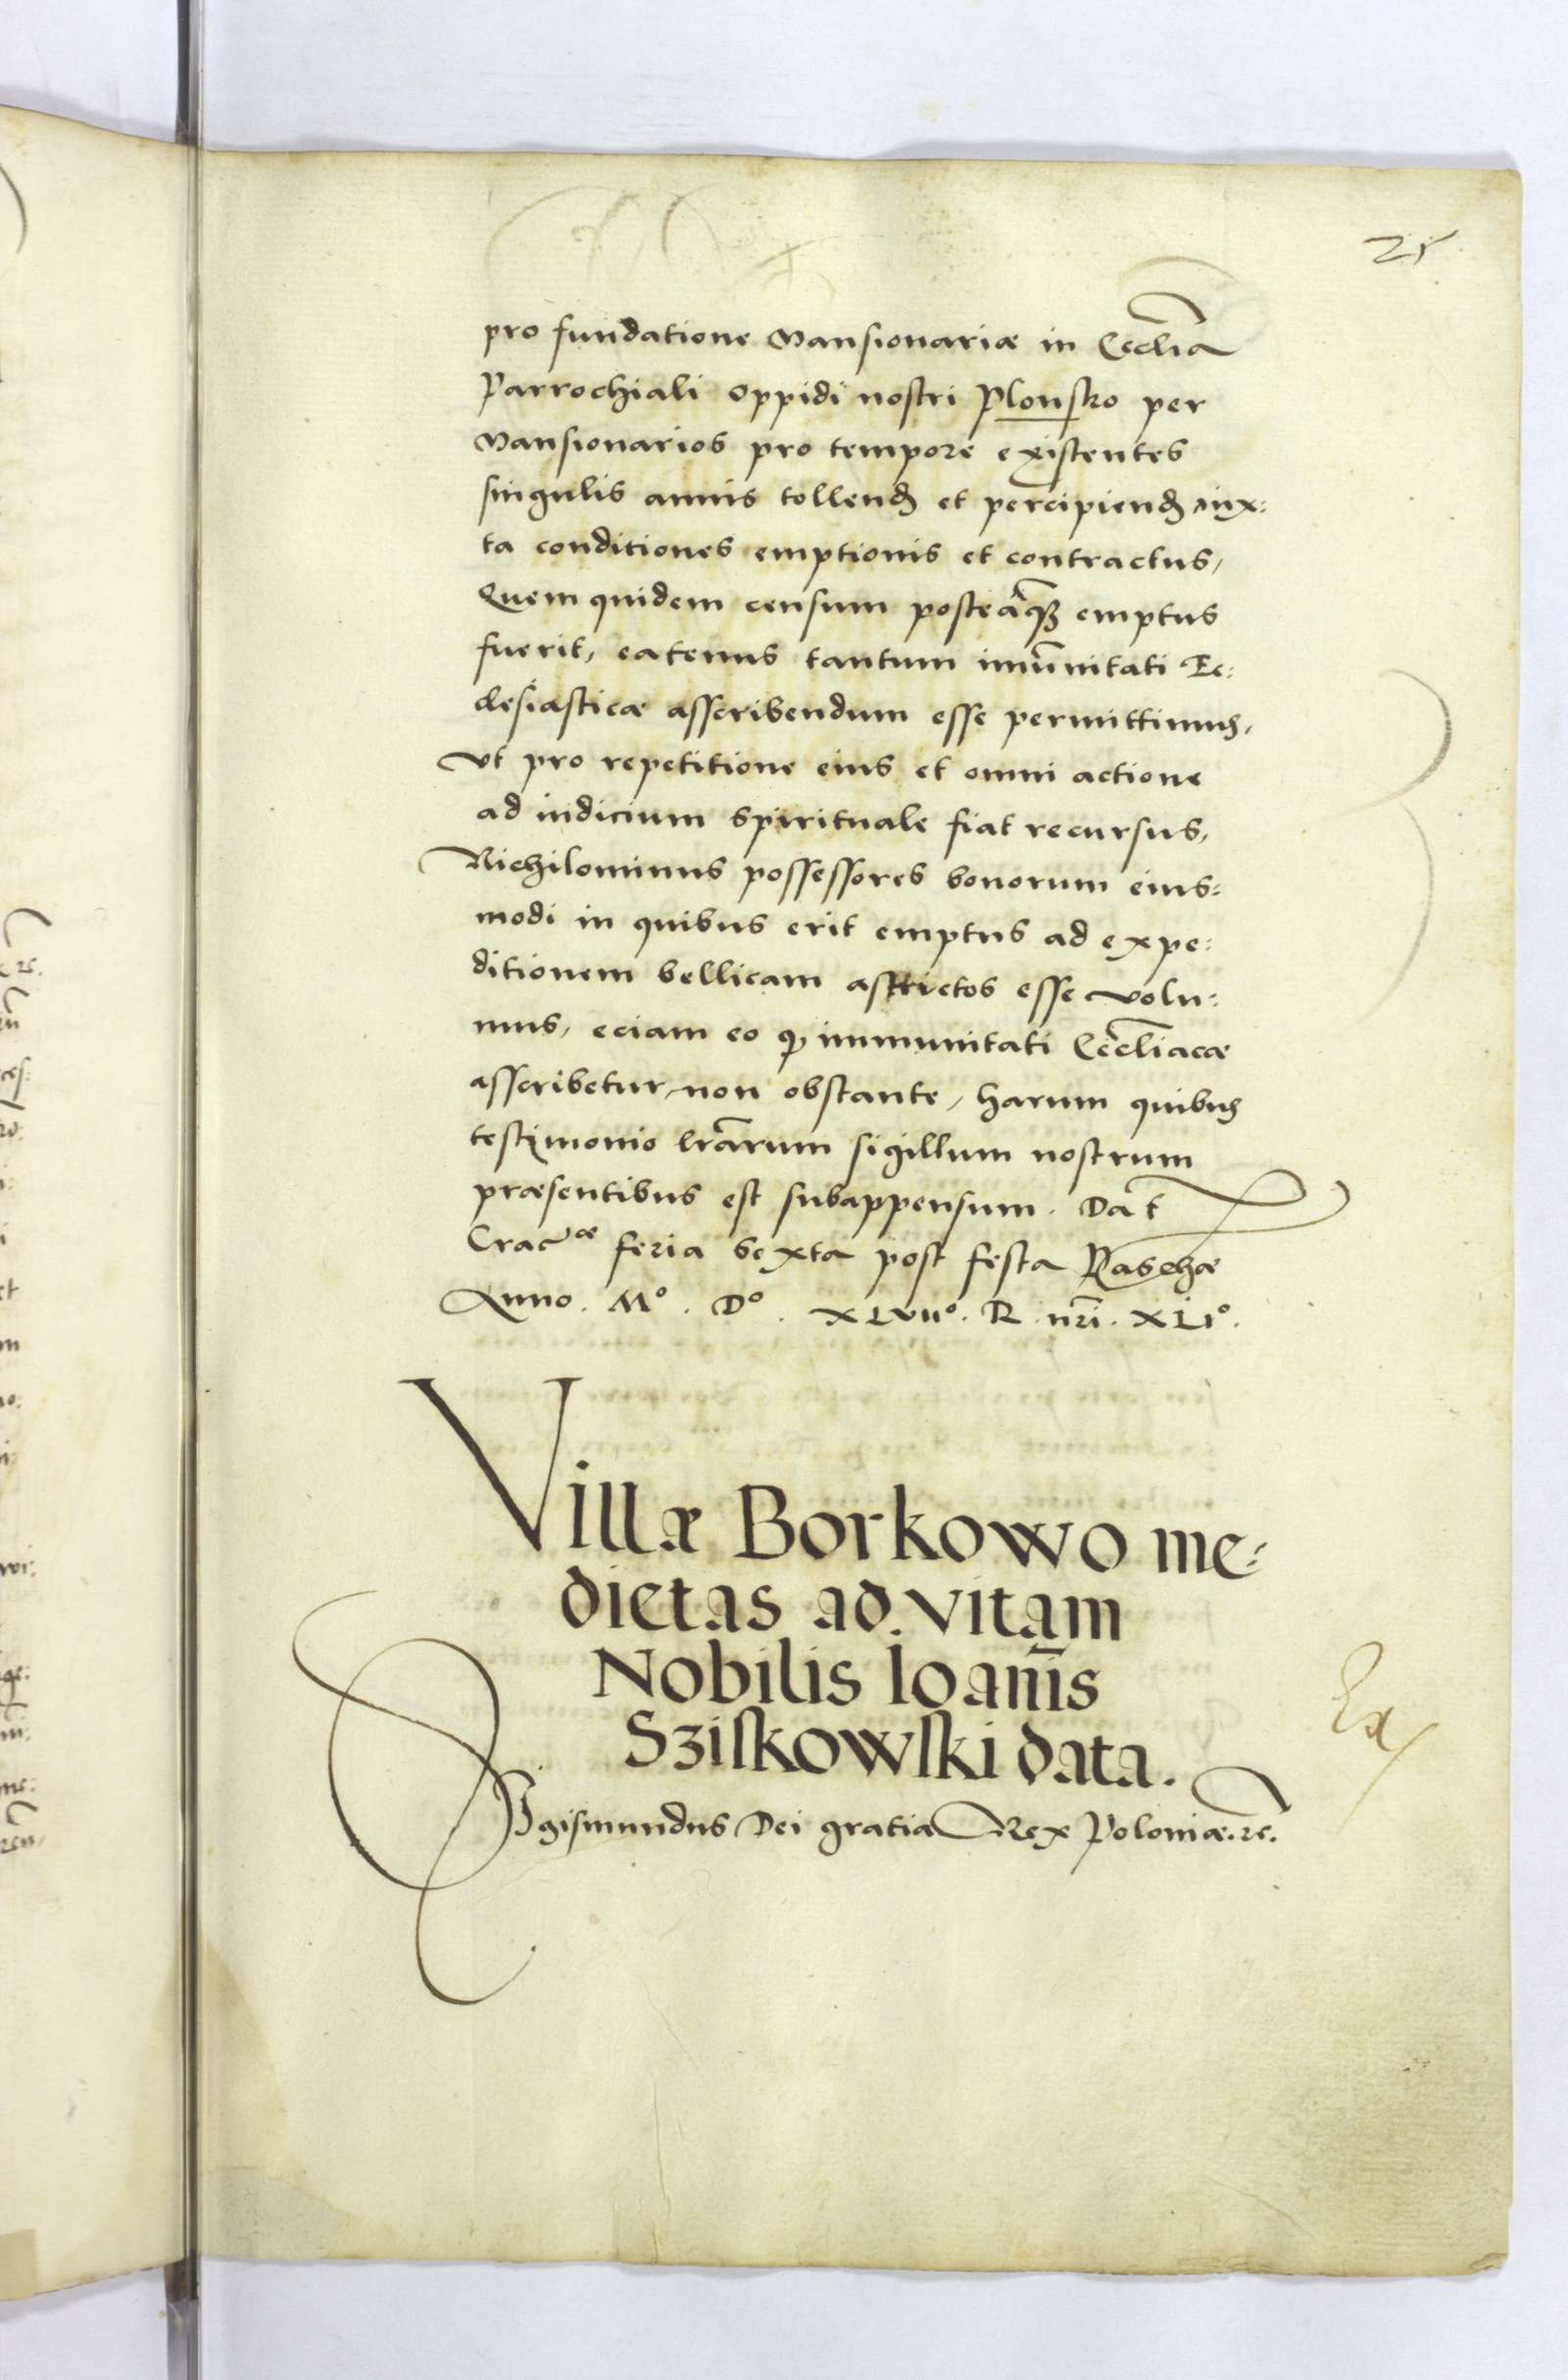 25
pro fundatione Mansionariæ in Eccl̄ia
Parrochiali oppidi nostri Plonsko per
Mansionarios pro tempore existentes
singulis annis tollend et percipiend iux:
ta conditiones emptionis et contractus,
Quem quidem censum posteāq̄ȝ emptus
fuerit, eatenus tantum imūnitati Ec:
clesiasticæ asscribendum esse permittimus,
vt pro repetitione eius et omni actione
ad iudicium spirituale fiat recursus,
Nichilominus possessores bonorum eius:
modi in quibus erit emptus ad expe:
ditionem bellicam asttrictos esse volu:
mus, eciam eo qƺ immunitati Eccl̄iacæ
asscribetur, non obstante, harum quibus
testimonio lr̄arum sigillum nostrum
præsentibus est subappensum. Dat
Cracᵒæ feria sexta post festa Paschæ
Anno. Mº. Dº. XLVIIº. R. nr̄i. XLIº.
Villæ Borkowo me:
dietas ad vitam
Nobilis Ioan̄is
Sziskowski data.
Sigismundus Dei gratia Rex Poloniæ. rc.
Ex